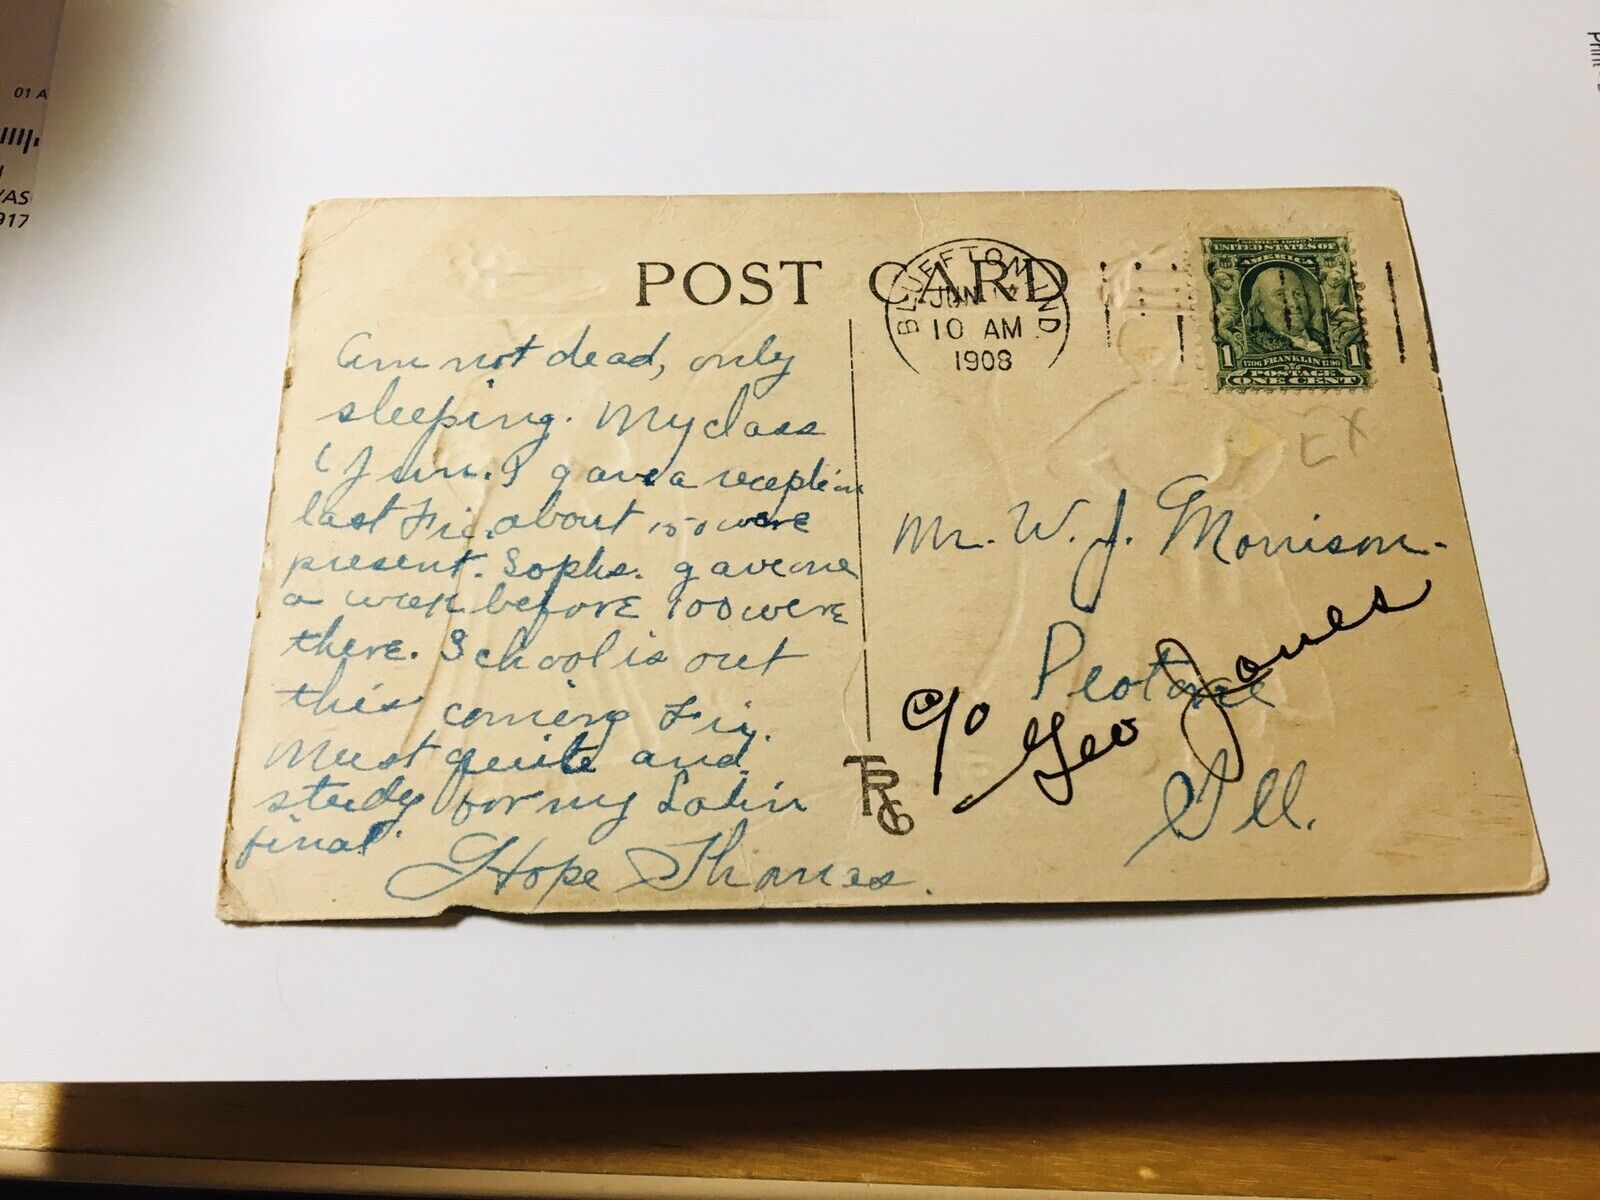 01 A
917
POST CARD
BLUFFTON IND.
JUN
10 AM
1908
SERIES 1902
UNITED STATES OF
AMERICA
1 FRANKLIN 1
POSTAGE
ONE CENT
Am not dead, only
sleeping. My class
(Jun.) gave a reception
last Fri. about 150 were
present. Sophs. gave one
a week before 100 were
there. School is out
this coming Fri.
Must quite and
study for my Latin
final.
Hope Thomas.
TRG
Mr. W. J. Morrison.
Peotone
c/o Geo Jones
Ill.